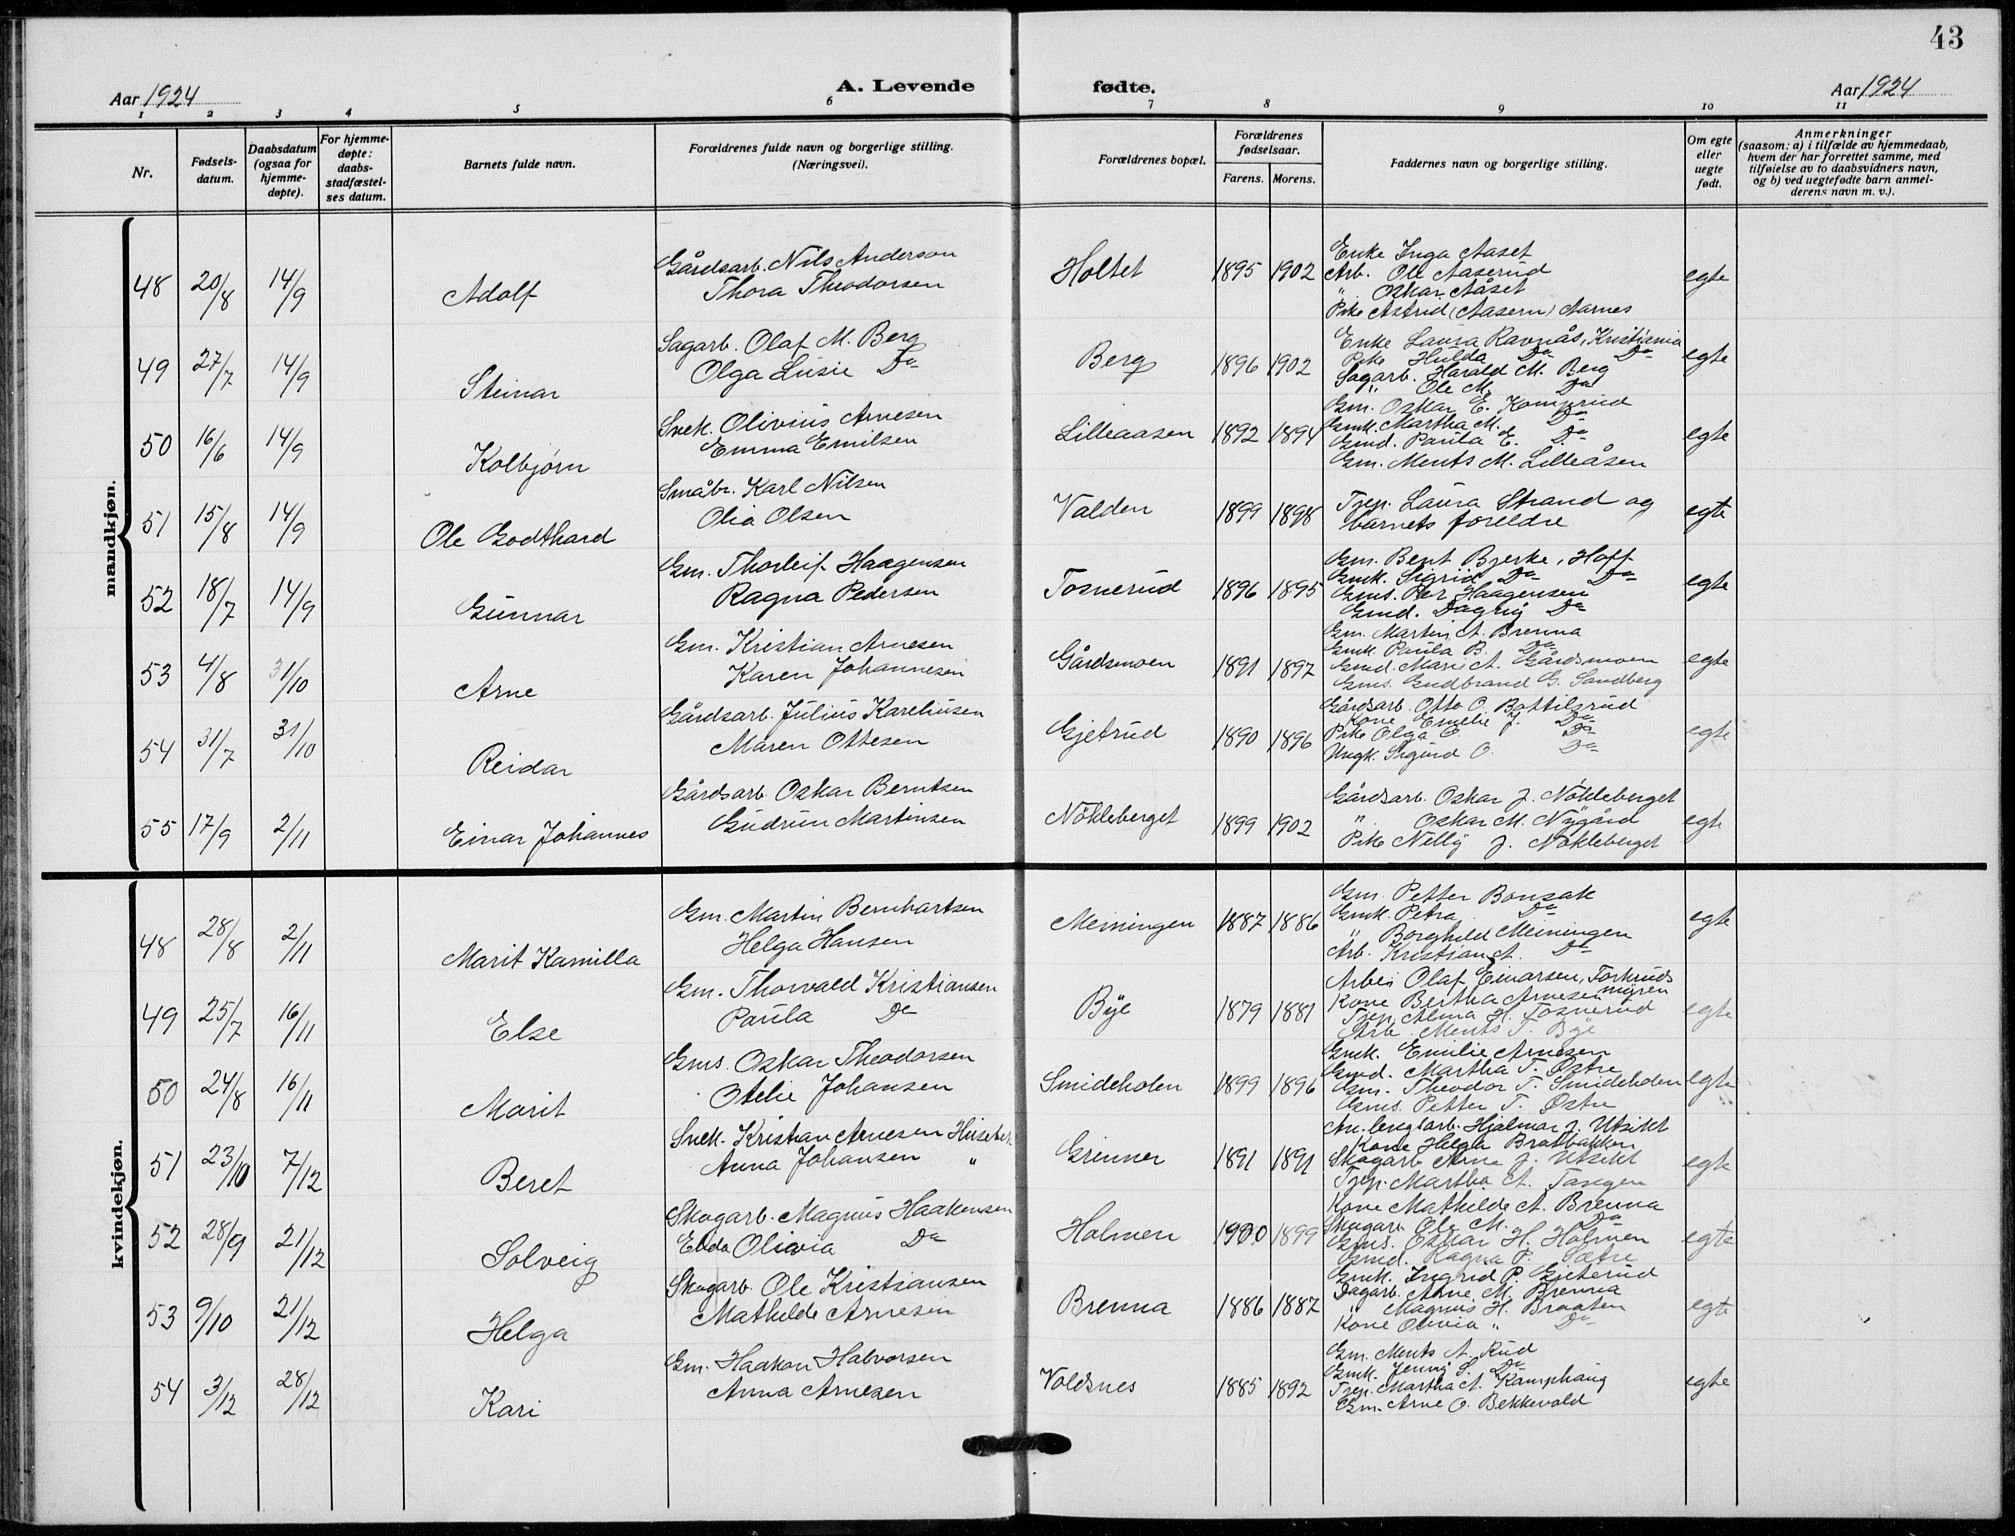 43
Aar 1924
A. Levende fødte.
Aar 1924
1 2 3 4 5 6 7 8 9 10 11
Nr.
Fødsels-
datum.
Daabsdatum
(ogsaa for
hjemme-
døpte).
For hjemme-
døpte:
daabs-
stadfæstel-
ses datum.
Barnets fulde navn.
Forældrenes fulde navn og borgerlige stilling.
(Næringsvei).
Forældrenes bopæl.
Forældrenes
fødselsaar.
Farens. Morens.
Faddernes navn og borgerlige stilling.
Om egte
eller
uegte
født.
Anmerkninger
(saasom: a) i tilfælde av hjemmedaab,
hvem der har forrettet samme, med
tilføielse av to daabsvidners navn,
og b) ved uegtefødte barn anmel-
derens navn m. v.).
mandkjøn.
48 20/8 14/9 Adolf
Gårdsarb. Nils Anderson
Thora Theodorsen
Holtet 1895 1902
Enke Inga Aaset
Arb. Ole Aaserud
" Oskar Aåset
Pike Astrid (Aasern) Aarnes
egte
49 27/7 14/9 Steinar
Sagarb. Olaf M. Berg
Olga Lusie Do
Berg 1896 1902
Enke Laura Ravnås, Kristiania
Pike Hulda Do Do
Sagarb. Harald M. Berg
" Ole M. Do
egte
50 16/6 14/9 Kolbjørn
Snek. Olivius Arnesen
Emma Emilsen
Lilleaasen 1892 1894
Gm. Oskar E. Kamprud
Gmk. Martha M. Do
Gmd. Paula E. Do
Gm. Ments M. Lilleåsen
egte
51 15/8 14/9 Ole Godthard
Småbr. Karl Nilsen
Olia Olsen
Valden 1899 1898
Tjep. Laura Strand og
barnets foreldre
egte
52 18/7 14/9 Gunnar
Gm. Thorleif Haagensen
Ragna Pedersen
Tosnerud 1896 1895
Gm. Bent Bjerke, Hoff
Gmk. Sigrid Do Do
Gms. Per Haagensen
Gmd. Dagny Do
egte
53 4/8 31/10 Arne
Gm. Kristian Arnesen
Karen Johannesen
Gårdsmoen 1891 1897
Gm. Martin A. Brenna
Gmk. Paula B. Do
Gmd. Marie A. Gårdsmoen
Gms. Gudbrand G. Sandberg
egte
54 31/7 31/10 Reidar
Gårdsarb. Julius Kareliusen
Maren Ottesen
Gjetrud 1890 1896
Gårdsarb. Otto O. Bottilsrud
Kone Emelie J. Do
Pike Olga O. Do
Ungk. Sigurd O. Do
egte
55 17/9 2/11 Einar Johannes
Gårdsarb. Oskar Berntsen
Gudrun Martinsen
Nökleberget 1899 1902
Gårdsarb. Oskar J. Nökleberget
" Oskar M. Nygård
Pike Nelly J. Nökleberget
egte
kvindekjøn.
48 28/8 2/11 Marit Kamilla
Gm. Martin Bernhartsen
Helga Hansen
Meiningen 1887 1886
Gm. Petter Bonsak
Gmk. Petra Do
" Borghild Meiningen
Arb. Kristian A. Do
egte
49 25/7 16/11 Else
Gm. Thorvald Kristiansen
Paula Do
Bye 1879 1881
Arbei Olaf Einarsen, Torkruds
Kone Bertha Arnesen myren
Tjep. Alma H. Tosnerud
Arb. Ments T. Bye
egte
50 24/8 16/11 Marit
Gms. Oskar Theodorsen
Otelie Johansen
Smideholen 1899 1896
Gmk. Emilie Arnesen
Gmd. Martha T. Østre
Gm. Theodor T. Smideholen
Gms. Petter T. Østre
egte
51 23/10 7/12 Beret
Snek. Kristian Arnesen Husebek
Anna Johansen "
Grinner 1891 1891
An.lengsarb. Hjalmar J. Utsikt
Kone Helga Bratbakken
Skogarb. Arne J. Utsikt
Tjep. Martha A. Tangen
egte
52 28/9 21/12 Solveig
Skogarb. Magnus Haakensen
Ebda Olivia Do
Holmen 1900 1899
Kone Mathilde A. Brenna
Skogarb. Ole M. Do
Gms. Oskar H. Holmen
Gmd. Ragna P. Sætre
egte
53 9/10 21/12 Helga
Skogarb. Ole Kristiansen
Mathilde Arnesen
Brenna 1886 1887
Gmk. Ingrid P. Gjeterud
Dagarb. Arne M. Brenna
" Magnus H. Braaten
Kone Olivia " Do
egte
54 3/12 28/12 Kari
Gm. Haakon Halvorsen
Anna Arnesen
Voldsnes 1885 1892
Gm. Ments A. Rud
Gmk. Jenny S. Do
Tjep. Martha A. Kamphaug
Gm. Arne O. Bekkevold
egte